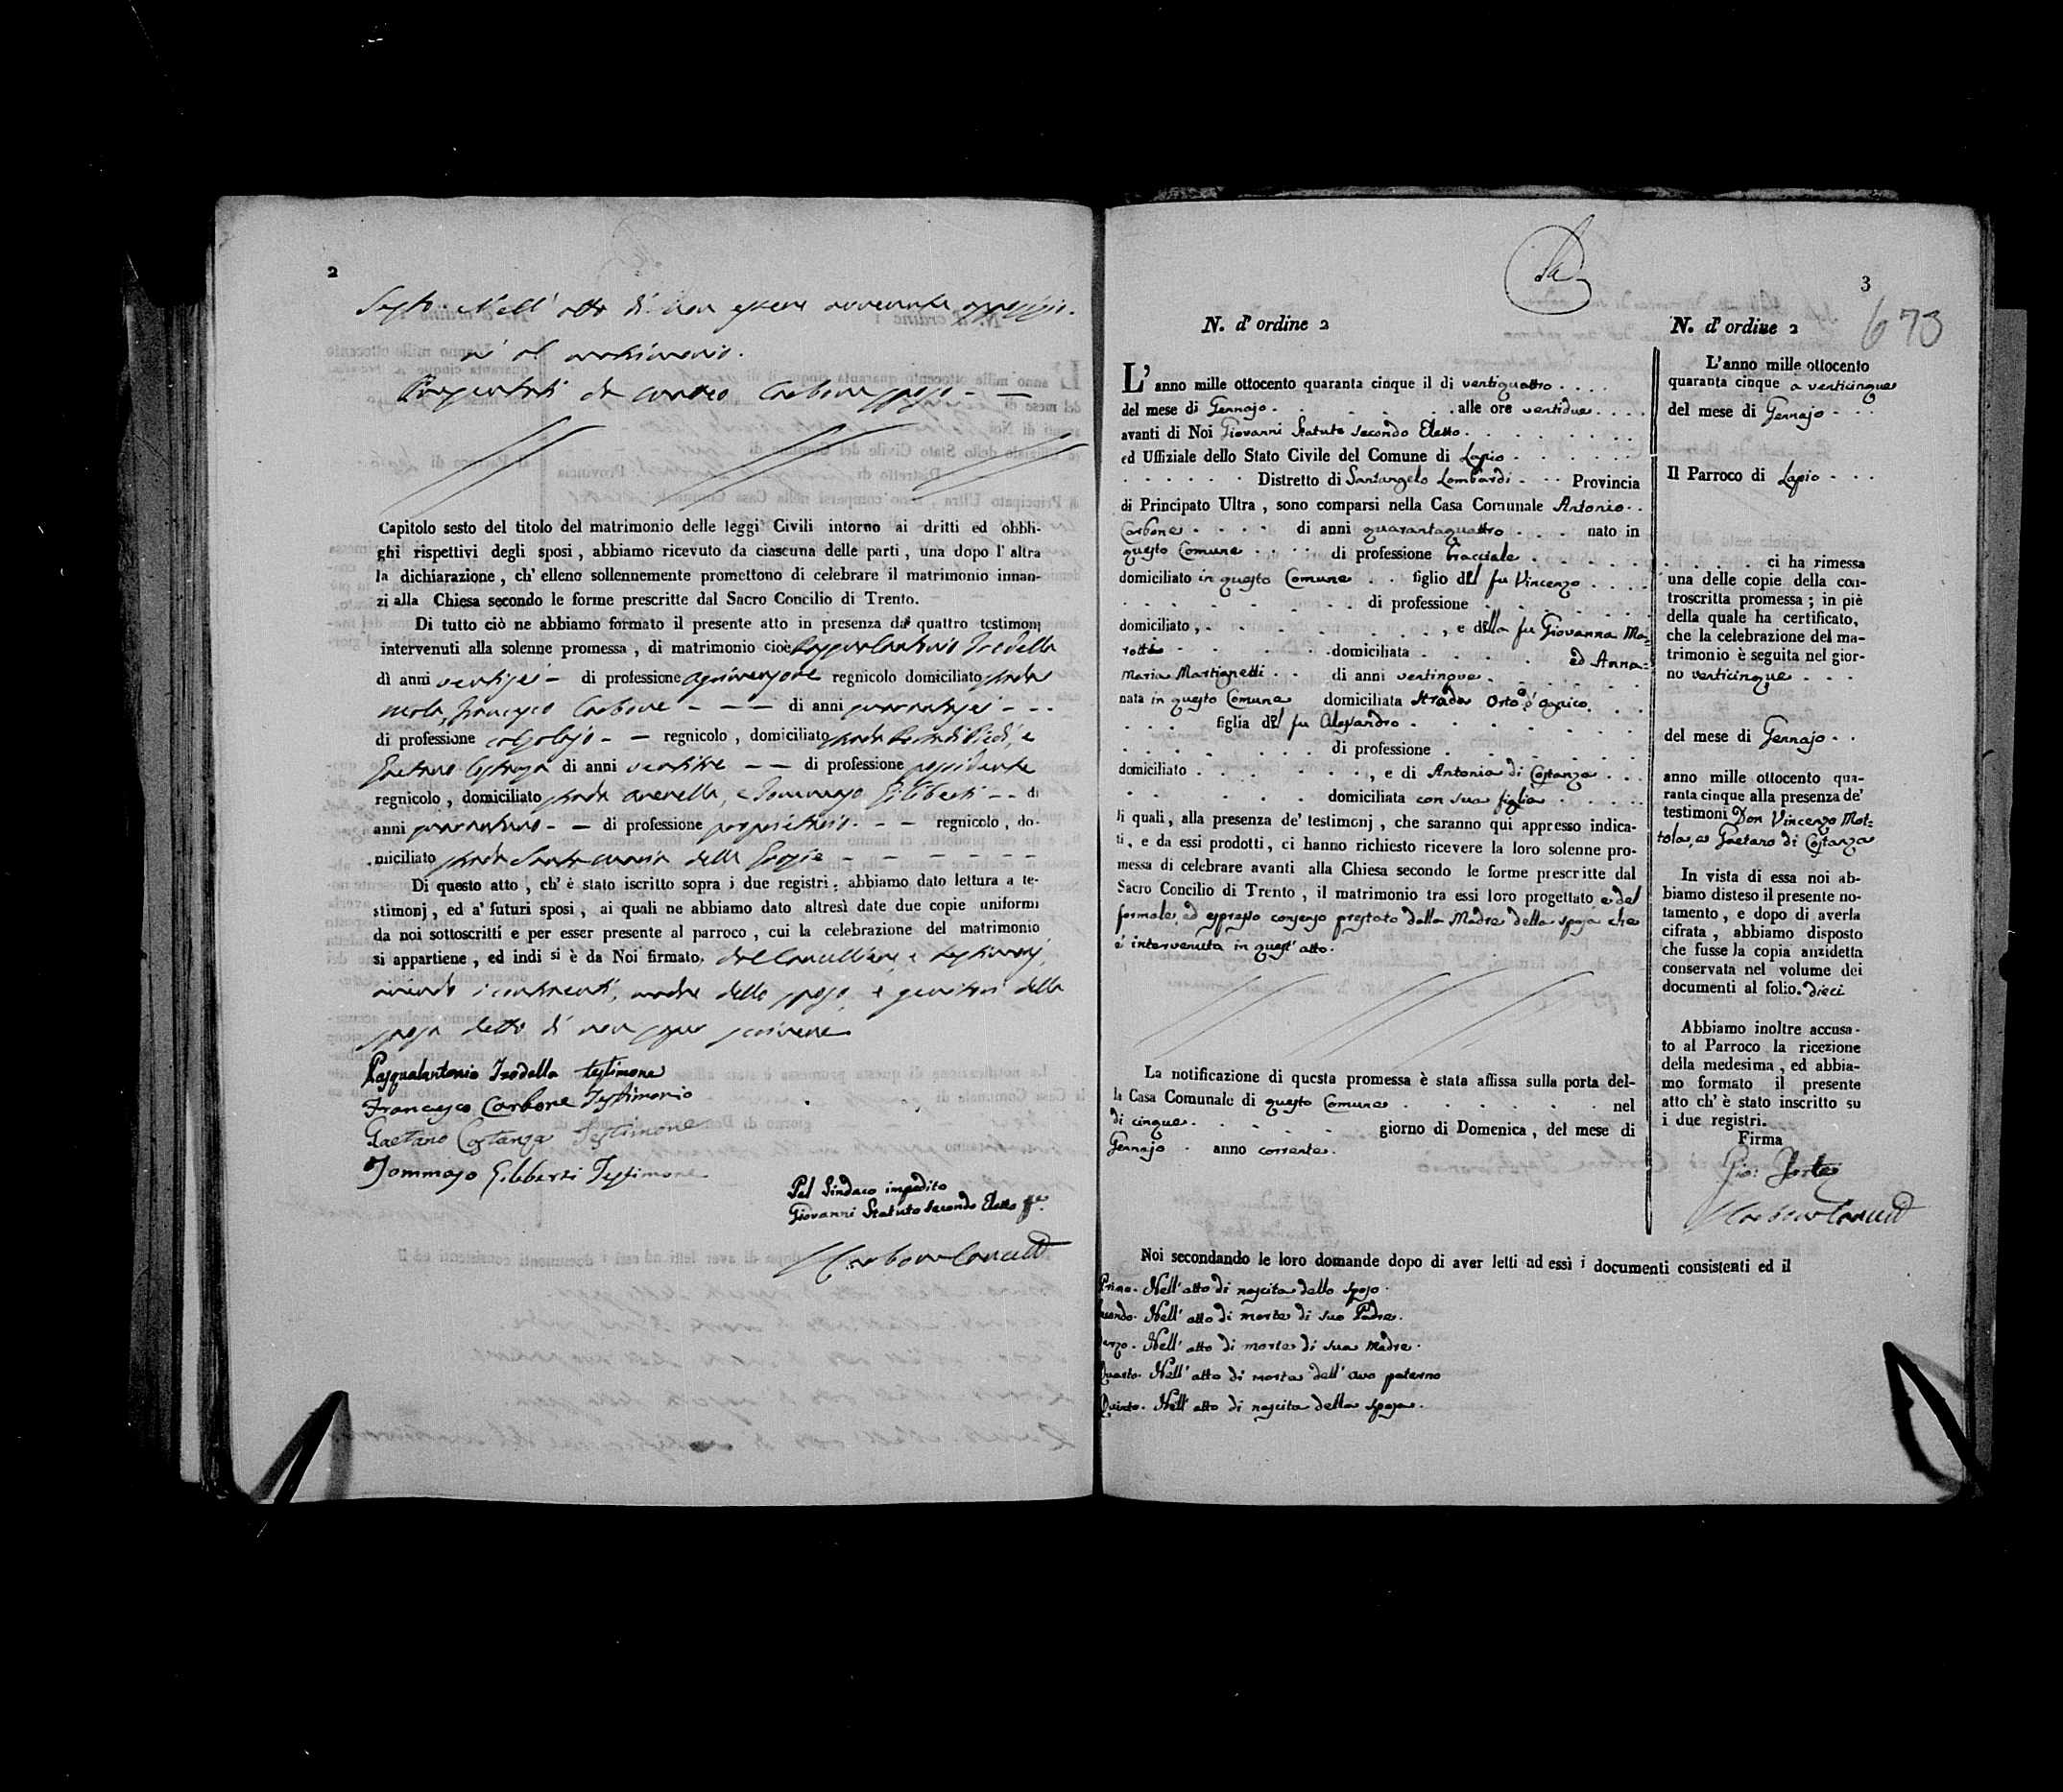 2
Sesto. Nell' atto di non essere avvenuta opposizio-
ne al matrimonio.
Carbone sposo - -
Capitolo sesto del titolo del matrimonio delle leggi Civili intorno ai dritti ed obbli-
ghi rispettivi degli sposi, abbiamo ricevuto da ciascuna delle parti, una dopo l' altra
la dichiarazione, ch' elleno sollennemente promettono di celebrare il matrimonio innan-
zi alla Chiesa secondo le forme prescritte dal Sacro Concilio di Trento.
Di tutto ciò ne abbiamo formato il presente atto in presenza da' quattro testimonj
intervenuti alla solenne promessa, di matrimonio cioè Pasqualantonio Irodella
dì anni ventisei - di professione regnicolo domiciliato strada
Francesco Carbone - - - di anni quarantasei - - -
di professione - - regnicolo, domiciliato strada
Gaetano Costanza di anni ventitre - - di professione possidente
regnicolo, domiciliato strada e Tommaso Giliberti - - di
anni - - di professione proprietario - - regnicolo, do-
miciliato strada Santa Maria delle Grazie - - - - - -
Di questo atto, ch' è stato iscritto sopra i due registri, abbiamo dato lettura a te-
stimonj, ed a' futuri sposi, ai quali ne abbiamo dato altresì date due copie uniformi
da noi sottoscritti e per esser presente al parroco, cui la celebrazione del matrimonio
si appartiene, ed indi si è da Noi firmato, dal Cancelliere, e testimonj,
avendo i contraenti, madre dello sposo, e genitori della
sposa detto di non saper scrivere
Pasqualantonio Irodella testimone
Francesco Carbone Testimonio
Gaetano Costanza Testimone
Tommaso Giliberti Testimone
Pel Sindaco impedito
Giovanni Statuto secondo Eletto ff.
Carbone Cancell
3
673
N. d' ordine 2
L' anno mille ottocento quaranta cinque il di ventiquattro . . . .
del mese di Gennajo . . . . . alle ore ventidue . . . .
avanti di Noi Giovanni Statuto secondo Eletto . . . . . . .
ed Uffiziale dello Stato Civile del Comune di Lapio . . . . . .
. . . . . . Distretto di Santangelo Lombardi . . . Provincia
di Principato Ultra, sono comparsi nella Casa Comunale Antonio . .
Carbone . . . . di anni quarantaquattro . . . nato in
questo Comune . . . . di professione bracciale . . . . . .
domiciliato in questo Comune . . figlio del fu Vincenzo . . . .
. . . . . . . . di professione . . . . . .
domiciliato, . . . . . . . . , e della fu Giovanna Ma=
rotta . . . . . . domiciliata . . . . . ed Anna=
maria Martignetti . . di anni ventinque . . . . . .
nata in questo Comune domiciliata Strada Orto d' Onrico . . .
. . . figlia del fu Alessandro . . . . . . .
. . . . . . . . di professione . . . . . . .
domiciliato . . . . . . . , e di Antonia di Costanza . . .
. . . . . . domiciliata con sua figlia . . . . .
li quali, alla presenza de' testimonj, che saranno qui appresso indica-
ti, e da essi prodotti, ci hanno richiesto ricevere la loro solenne pro-
messa di celebrare avanti alla Chiesa secondo le forme prescritte dal
Sacro Concilio di Trento, il matrimonio tra essi loro progettato e del
formale, ed espresso consenso prestato dalla Madre della sposa che
è intervenuta in quest' atto.
La notificazione di questa promessa è stata affissa sulla porta del-
la Casa Comunale di questo Comune . . . . . . nel
di cinque . . . . . . giorno di Domenica, del mese di
Gennajo . anno corrente.
N. d' ordine 2
L'anno mille ottocento
quaranta cinque a venticinque
del mese di Gennajo - - -
Il Parroco di Lapio - - -
. . . . ci ha rimessa
una delle copie della con-
troscritta promessa; in piè
della quale ha certificato,
che la celebrazione del ma-
trimonio è seguita nel gior-
no venticinque - - -
del mese di Gennajo - -
anno mille ottocento qua-
ranta cinque alla presenza de'
testimoni Don Vincenzo Mot=
tola, e Gaetano di Costanza
In vista di essa noi ab-
biamo disteso il presente no-
tamento, e dopo di averla
cifrata, abbiamo disposto
che fusse la copia anzidetta
conservata nel volume dei
documenti al folio. dieci
Abbiamo inoltre accusa-
to al Parroco la ricezione
della medesima, ed abbia-
mo formato il presente
atto ch' è stato inscritto su
i due registri.
Firma
Carbone Cancell
Noi secondando le loro domande dopo di aver letti ad essi i documenti consistenti ed il
Primo. Nell' atto di nascita dello sposo.
Secondo. Nell' atto di morte di suo Padre.
Terzo. Nell' atto di morte di sua Madre.
Quarto. Nell' atto di morte dell' avo paterno
Quinto. Nell' atto di nascita della sposa.